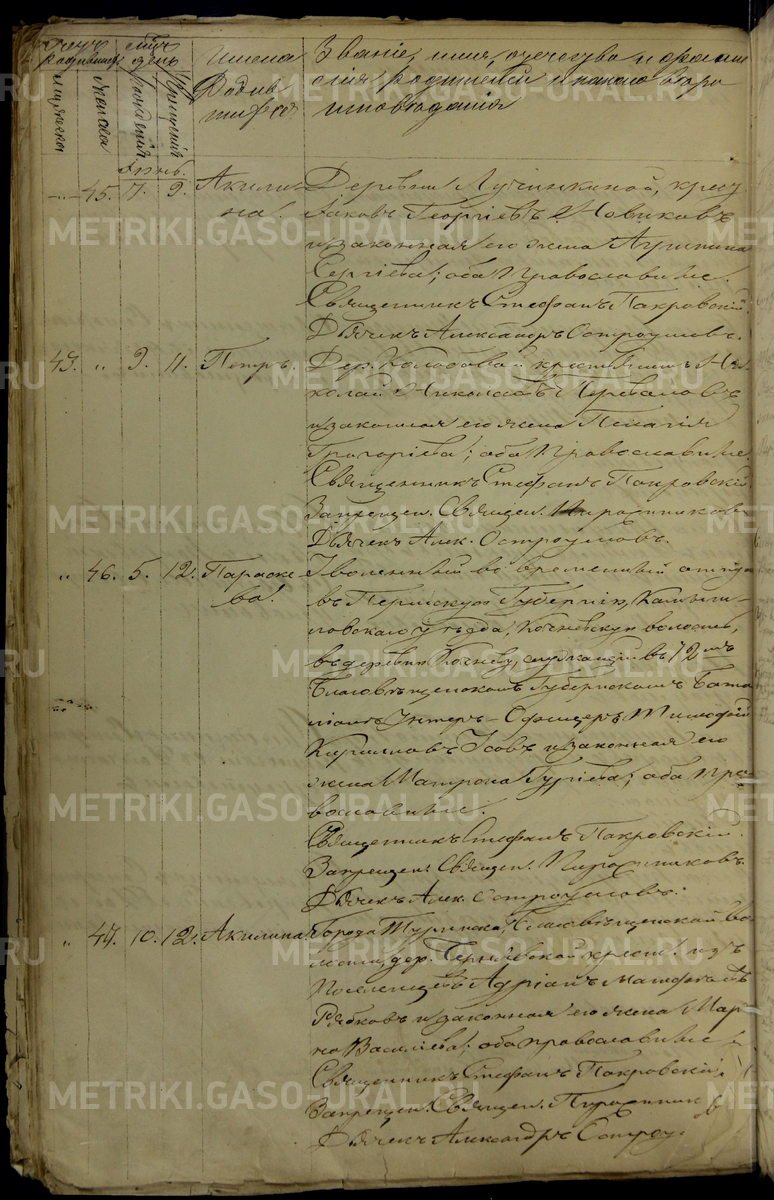 Счетъ родившихся
Мѣсяцъ день
Имена
Званіе, имя, отечество и фами
родив
лія родителей и какого вѣро
шихся
исповѣданія
мужеска
женска
рожденія
крещенія
Іюнь.
45. 7. 9. Акили Деревни Лучинкиной, крест
на. Іаковъ Георгіевъ Новиковъ
и законная его жена Агрипина
Сергіева; оба православные.
Священникъ Стефанъ Покровскій
Дьячекъ Александръ Остроумовъ.
43. " 9. 11. Петръ. Дер. Колобовой крестьянинъ Ни
колай Николаевъ Череваловъ
и законная его жена Пелагія
Григоріева; оба православные.
Священникъ Стефанъ Покровскій
Запрещен. Священ. Пирожниковъ
Дьячекъ Алек. Остроумовъ.
" 46. 5. 12. Параске Уволенный во временный отпускъ
ва. въ Пермскую Губернію, Камыш
ловскаго уѣзда, волость,
въ деревню служащій въ 72мъ
Благовѣщенскомъ Губернскомъ Бата
ліонѣ Унтеръ-Офицеръ Тимофей
Кирилловъ Усовъ и законная его
жена Матрона Гургіева; оба пра
вославные.
Священникъ Стефанъ Покровскій.
Запрещен. Священ. Пирожниковъ.
Дьячекъ Алек. Остроумовъ.
" 47. 10. 12. Акилина. Города Туринска, Благовѣщенской во
лости, дер. крест. изъ
Поселенцевъ Адріанъ Матфеевъ
Рябковъ и законная его жена Мар
Василіева; оба православные
Священникъ Стефанъ Покровскій.
Запрещен. Священ. Пирожников
Дьячекъ Александръ Остроу.
METRIKI.GASO-URAL.RU